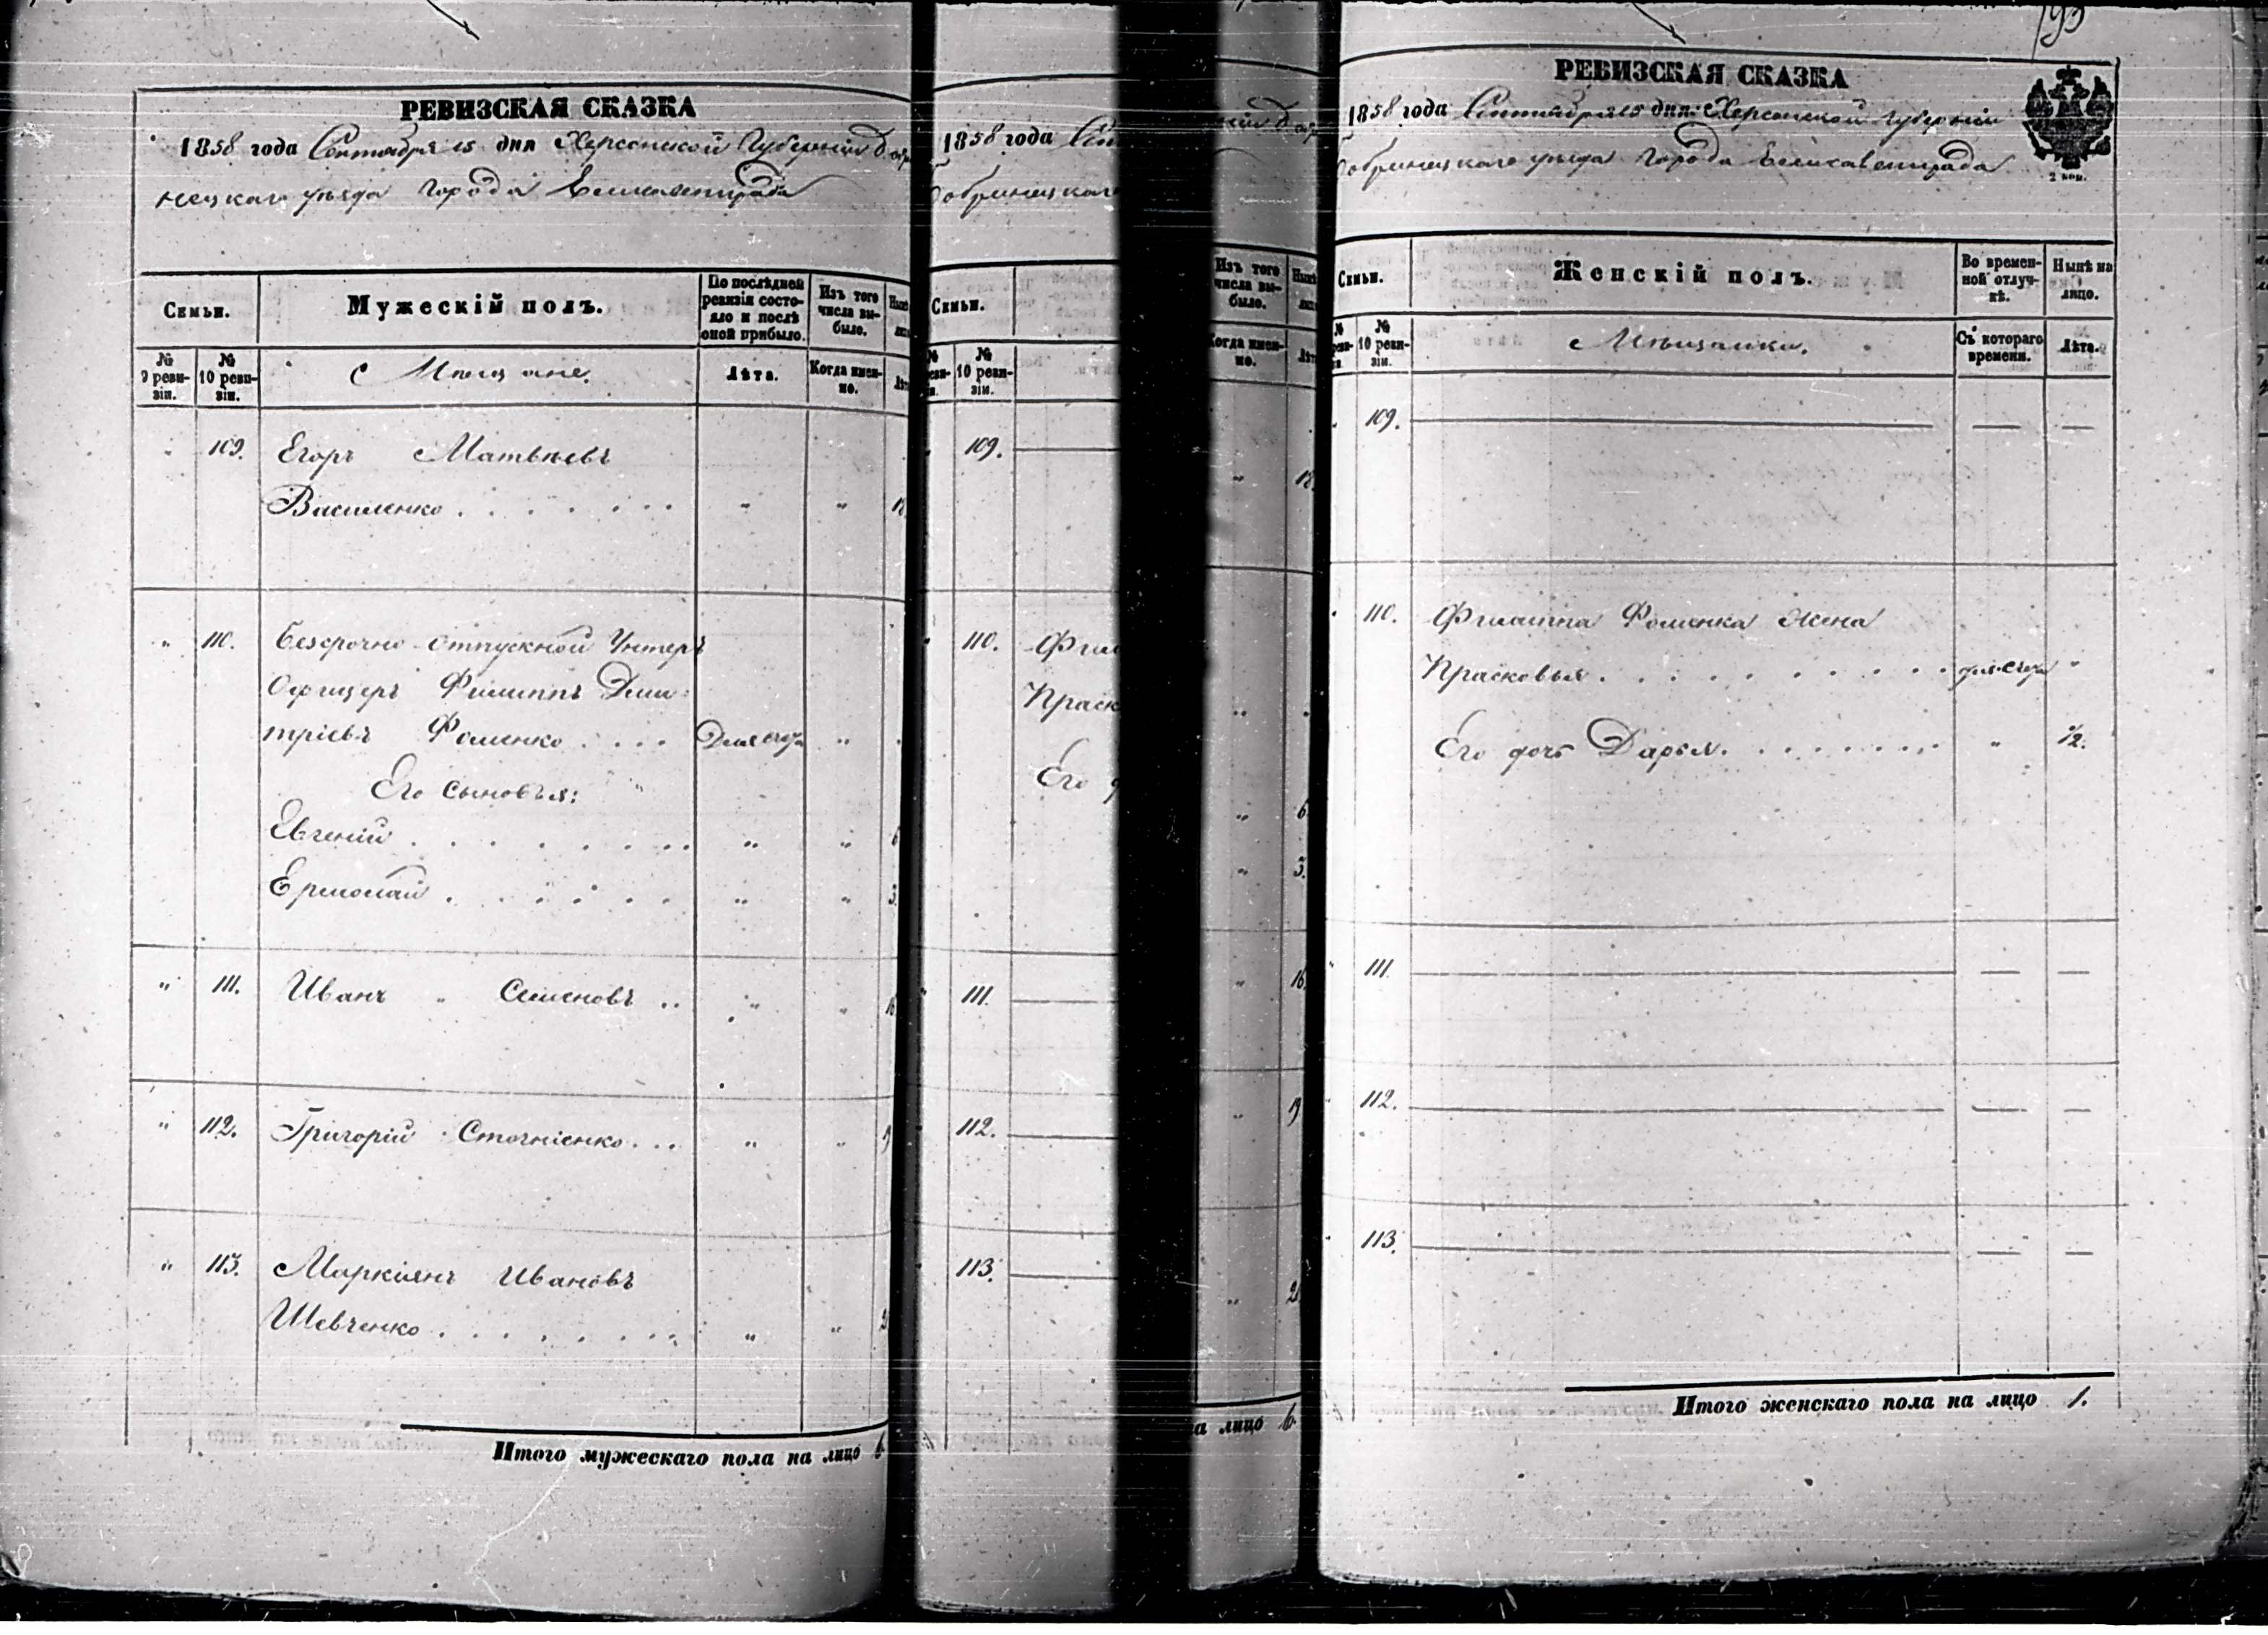 193
РЕВИЗСКАЯ СКАЗКА
1858 года Сентября 15 дня Херсонской Губерніи Бобри
нецкаго уѣзда города Елисаветграда
Семьи.
Мужескій полъ.
По послѣдней ревизіи состо-
яло и послѣ
оной прибыло.
Изъ того
числа вы-
было.
№
9 реви-
зіи.
№
10 реви-
зіи.
Мѣщане.
Лѣта.
Когда имен-
но.
" 109. Егоръ Матвѣевъ
Василенко . . . . . . . " " 18.
" 110. Безсрочно-отпускной Унтеръ
Офицеръ Филиппъ Дми-
тріевъ Фоменко . . . . Для счета "
Его сыновья:
Евгеній . . . . . . . . " " 6
Ермолай . . . . . . " " 3.
" 111. Иванъ Семеновъ .. " " 16
" 112. Григорій Стогніенко . . . " " 19
" 113. Маркіянъ Ивановъ
Шевченко . . . . . . . " " 2
Итого мужескаго пола на лицо 6
1858 года
обринецкаго
Семьи.
№
10 реви-
зіи.
109.
110.
Праск
Его
111.
112.
113.
Изъ того
числа вы-
было.
Когда имен-
но.
" 18.
"
" 6
" 3.
" 16.
" 19
" 2
на лицо 6.
РЕВИЗСКАЯ СКАЗКА
1858 года Сентября 15 дня Херсонской Губерніи
Бобринецкаго уѣзда города Елисаветграда
2 коп.
Семьи.
Женскій полъ.
Во времен-
ной отлуч-
кѣ.
Нынѣ на
лицо.
№
10 реви-
зіи.
Мѣщанки.
Съ котораго
времени.
Лѣта.
109. — —
110. Филиппа Фоменка жена
Прасковья . . . . . . . . . . для счета "
Его дочь Дарья . . . . . . . . " 1/2.
111. — —
112. — —
113. — —
Итого женскаго пола на лицо 1.